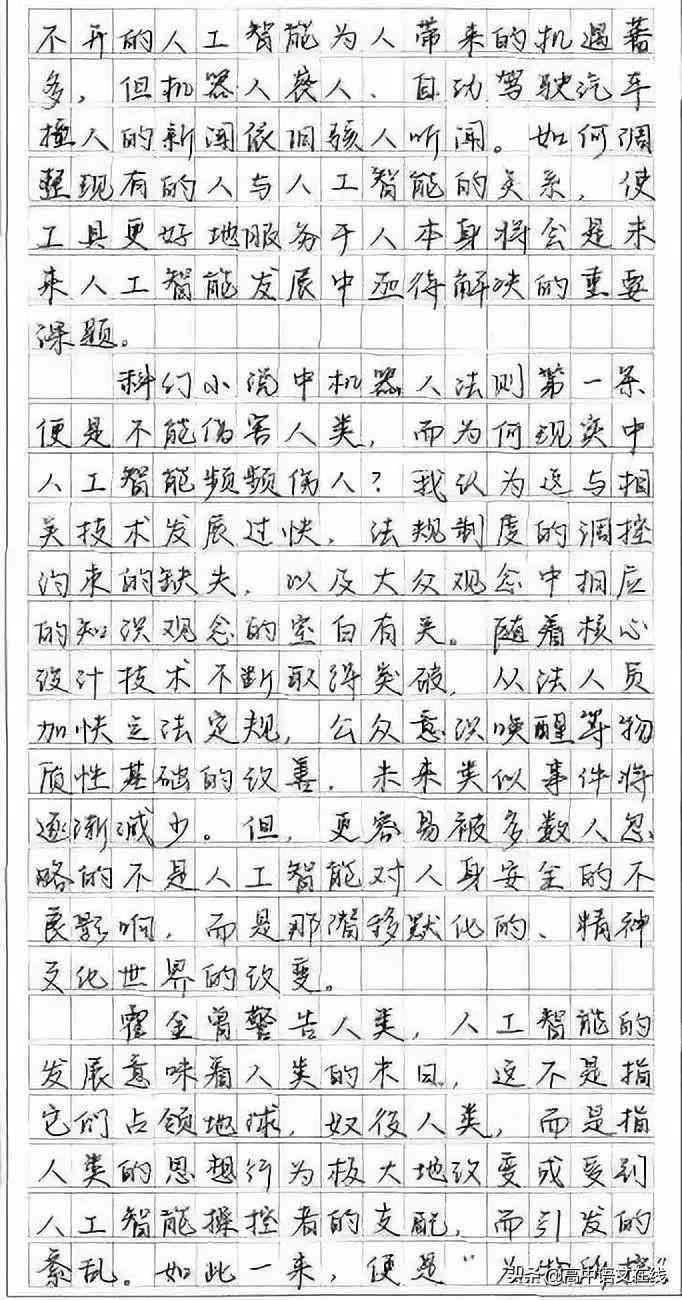 不开的人工智能为人带来的机遇蓄
多，但机器人丧人、自动驾驶汽车
撞人的新闻依旧骇人听闻。如何调
整现有的人与人工智能的关系，使
工具更好地服务于人本身将会是未
来人工智能发展中亟待解决的重要
课题。
科幻小说中机器人法则第一条
便是不能伤害人类，而为何现实中
人工智能频频伤人？我认为这与相
关技术发展过快，法规制度的调控
约束的缺失，以及大众观念中相应
的知识观念的空白有关。随着核心
设计技术不断取得突破，从法人员
加快立法定规，公众意识唤醒等物
质性基础的改善，未来类似事件将
逐渐减少。但，更容易被多数人忽
略的不是人工智能对人身安全的不
良影响，而是那潜移默化的、精神
文化世界的改变。
霍金曾警告人类，人工智能的
发展意味着人类的末日，这不是指
它们占领地球，奴役人类，而是指
人类的思想行为极大地改变或受到
人工智能操控者的支配，而引发的
紊乱。如此一来，便是“
头条@高中语文在线